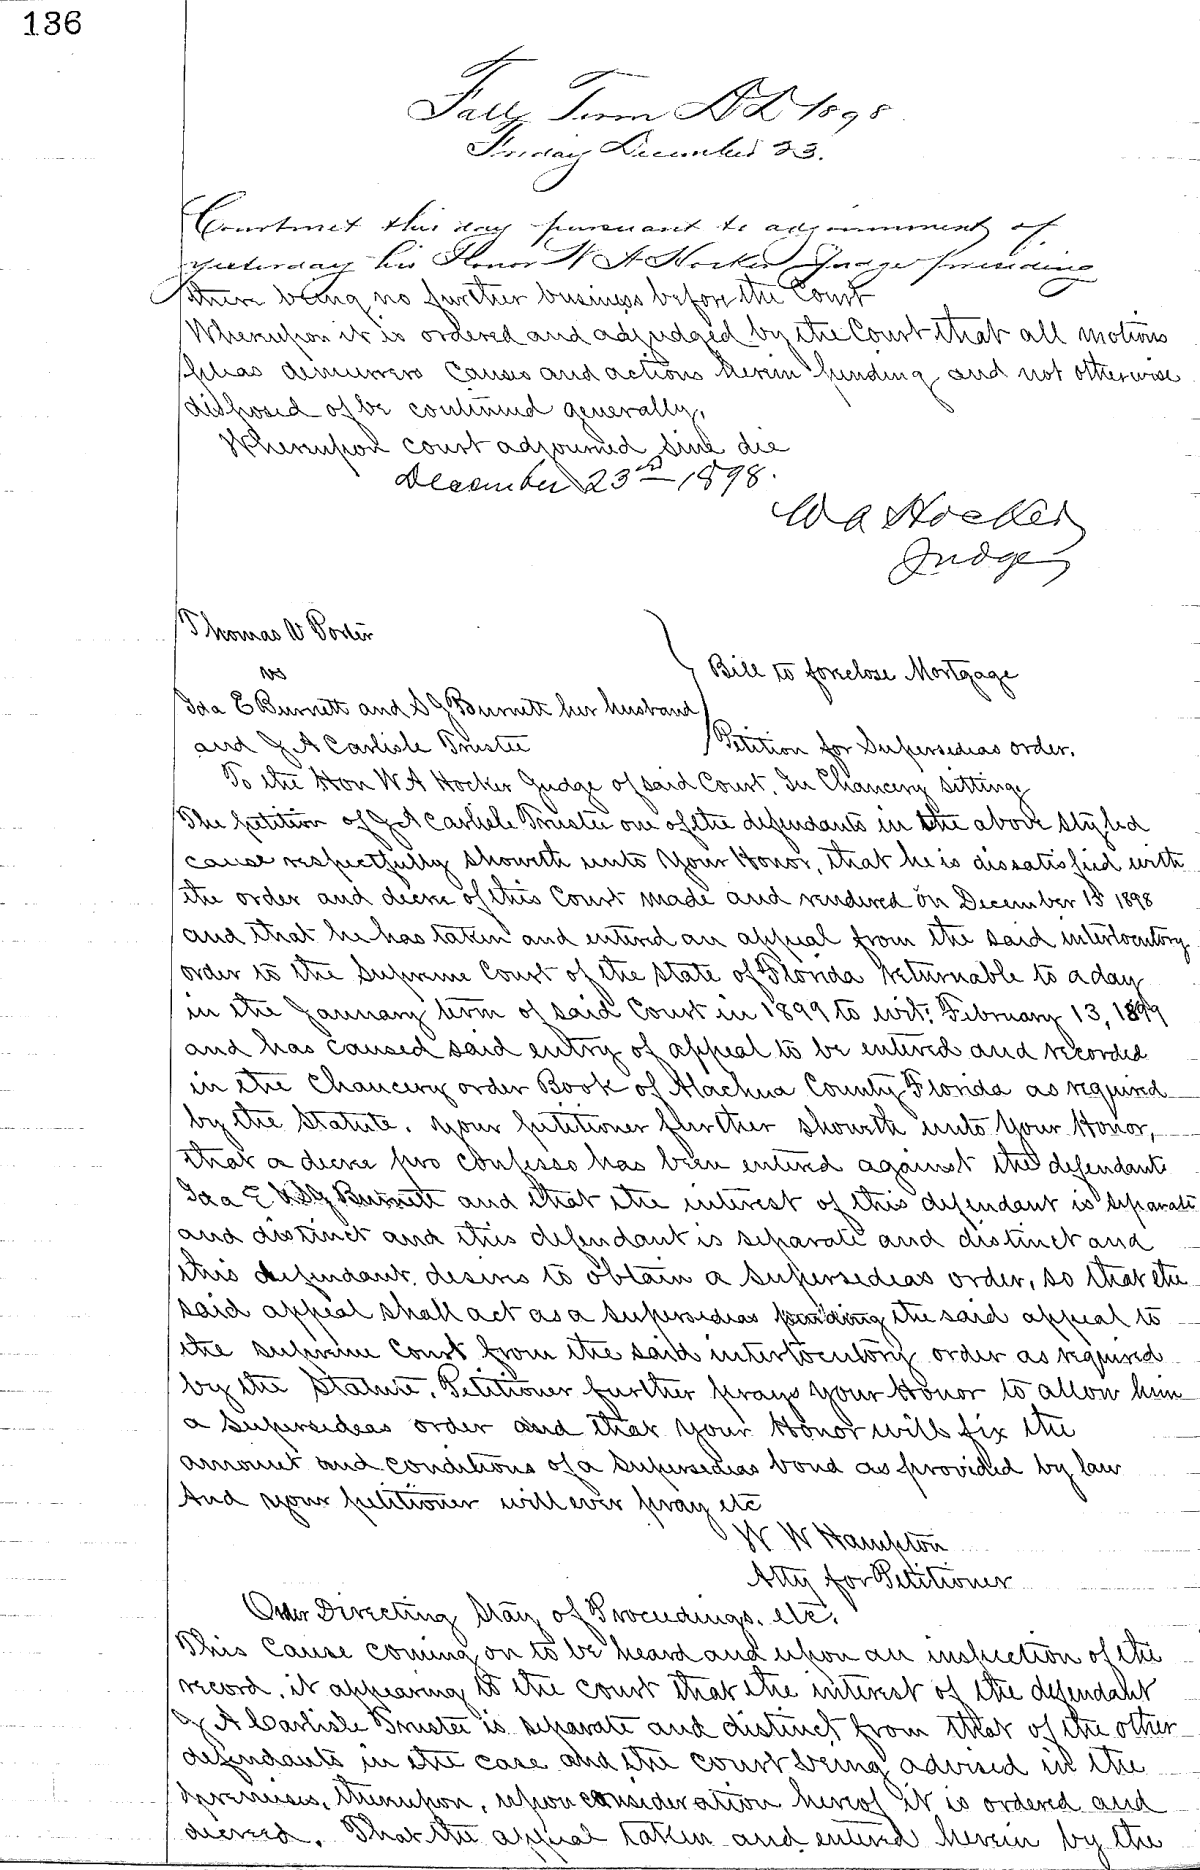 136
Fall Term AD 1898
Friday December 23.
Court met this day pursuant to adjournment of
yesterday his Honor W A Hocker Judge presiding
there being no further business before the Court
Whereupon it is ordered and adjudged by the Court that all motions
pleas demurrers causes and actions herein pending and not otherwise
disposed of be continued generally.
Whereupon court adjourned sine die
December 23rd 1898.
W A Hocker
Judge
Thomas V Porter
vs
Ida E Burnett and S G Burnett her husband
and J A Carlisle Trustee
Bill to foreclose Mortgage
Petition for Supersedeas order.
To the Hon W A Hocker Judge of said Court. In Chancery sitting
The petition of J A Carlisle Trustee one of the defendants in the above styled
cause respectfully showeth unto Your Honor, that he is dissatisfied with
the order and decree of this Court made and rendered on December 1898
and that he has taken and entered an appeal from the said interlocutory
order to the Supreme Court of the State of Florida returnable to a day
in the January term of said Court in 1899 to wit: February 13, 1899
and has caused said entry of appeal to be entered and recorded
in the Chancery order Book of Alachua County Florida as required
by the Statute. Your petitioner further showeth unto Your Honor,
that a decree pro confesso has been entered against the defendants
Ida E & S G Burnett and that the interest of this defendant is separate
and distinct and this defendant is separate and distinct and
this defendant. desires to obtain a supersedeas order, so that the
said appeal shall act as a supersedeas pending the said appeal to
the supreme Court from the said interlocutory order as required
by the Statute. Petitioner further prays your Honor to allow him
a supersedeas order and that your Honor will fix the
amount and conditions of a supersedeas bond as provided by law
And your petitioner will ever pray etc
W W Hampton
Atty for Petitioner
Order Directing Stay of Proceedings. etc.
This Cause coming on to be heard and upon an inspection of the
record, it appearing to the court that the interest of the defendant
J A Carlisle Trustee is separate and distinct from that of the other
defendants in the case and the court being advised in the
premises, thereupon, upon consideration hereof it is ordered and
decreed. That the appeal taken and entered herein by the